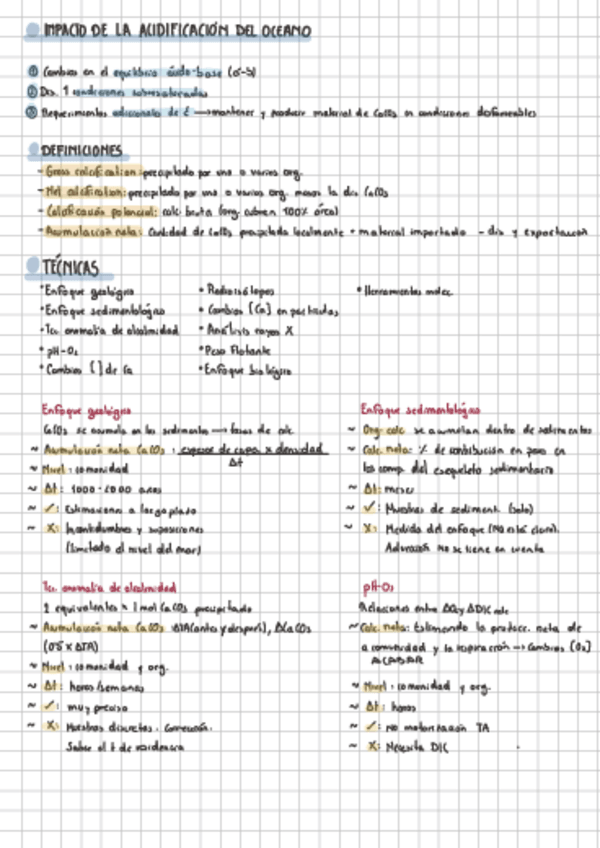 IMPACTO DE LA ACIDIFICACIÓN DEL OCEANO
① Cambios en el equilibrio ácido-base (o-b)
② Dis. 1 condiciones sobresaturadas
③ Requerimientos adicionales de E → mantener y producir material de CaCO₃ en condiciones desfavorables
DEFINICIONES
- Gross calcification: precipitado por uno o varios org.
- Net calcification: precipitado por uno o varios org. menos la dis CaCO₃
- Calcificación potencial: calc. bruta (org. cubren 100% área)
- Acumulación neta: Cantidad de CaCO₃ precipitada localmente + material importado - dis y exportación
TÉCNICAS
* Enfoque geológico
* Enfoque sedimentológico
* Tec. anomalía de alcalinidad
* pH-O₂
* Cambios [ ] de Ca
* Radioisótopos
* Cambios [Ca] en partículas
* Análisis rayos X
* Peso flotante
* Enfoque biológico
* Herramientas molec.
Enfoque geológico
CaCO₃ se acumula en los sedimentos → tasas de calc.
~ Acumulación neta CaCO₃: espesor de capa x densidad
Δt
~ Nivel: comunidad
~ Δt: 1000-2000 años
~ ✓: Estimaciones a largo plazo
~ X: Incertidumbres y suposiciones
(limitado al nivel del mar)
Enfoque sedimentológico
~ Org. calc se acumulan dentro de sedimentos
~ Calc. neta: % de contribución en peso en
los comp. del esqueleto sedimentario
~ Δt: meses
~ ✓: Muestras de sediment. (solo)
~ X: Medida del enfoque (No está claro).
Advección no se tiene en cuenta
Tec. anomalía de alcalinidad
2 equivalentes x 1 mol CaCO₃ precipitado
~ Acumulación neta CaCO₃: ΔTA (antes y después), ΔCaCO₃
(0'5 x ΔTA)
~ Nivel: comunidad y org.
~ Δt: horas/semanas
~ ✓: muy preciso
~ X: Muestras discretas. Corrección.
Saber el t de residencia
pH-O₂
Relaciones entre ΔO₂ y ΔDIC
~ Calc. neta: Estimando la producc. neta de
a comunidad y la respiración → Cambios [O₂]
~ Nivel: comunidad y org.
~ Δt: horas
~ ✓: No TA
~ X: Necesita DIC